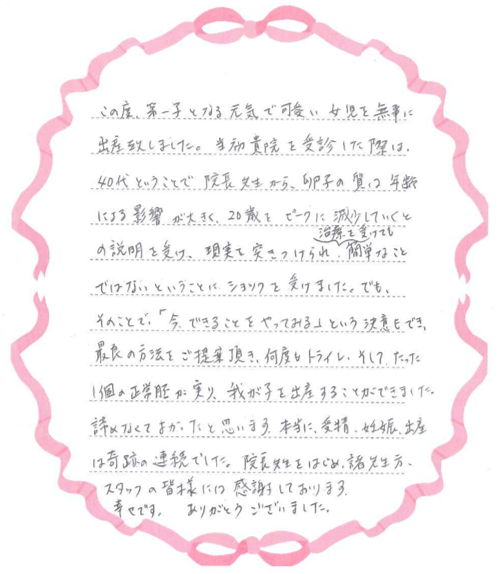 この度、第一子となる元気で可愛い女児を無事に
出産致しました。当初貴院を受診した際は、
40代ということで院長先生から、卵子の質は年齢
による影響が大きく、20歳をピークに減少していくと
の説明を受け、現実を突きつけられ、治療を受けても簡単なこと
ではないということにショックを受けました。でも、
そのことで、「今、できることをやってみる」という決意もでき、
最良の方法をご提案頂き、何度もトライし、そして、たった
1個の正常胚が実り、我が子を出産することができました。
諦めなくてよかったと思います。本当に、受精、妊娠、出産
は奇跡の連続でした。院長先生をはじめ、諸先生方、
スタッフの皆様には感謝しております。
幸せです。ありがとうございました。